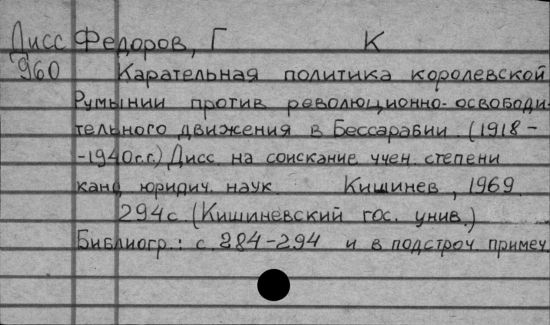 Дисс Федоров, Г К
960 Карательная политика королевской
Румынии против революционно-освободи-
тельного движения в Бессарабии. (1918-
-1940г.г.) Дисс. на соискание учен. степени
канд. юридич. наук. Кишинев, 1969.
294с. (Кишиневский гос. унив.)
Библиогр.: с. 284-294 и в подстроч. примеч.